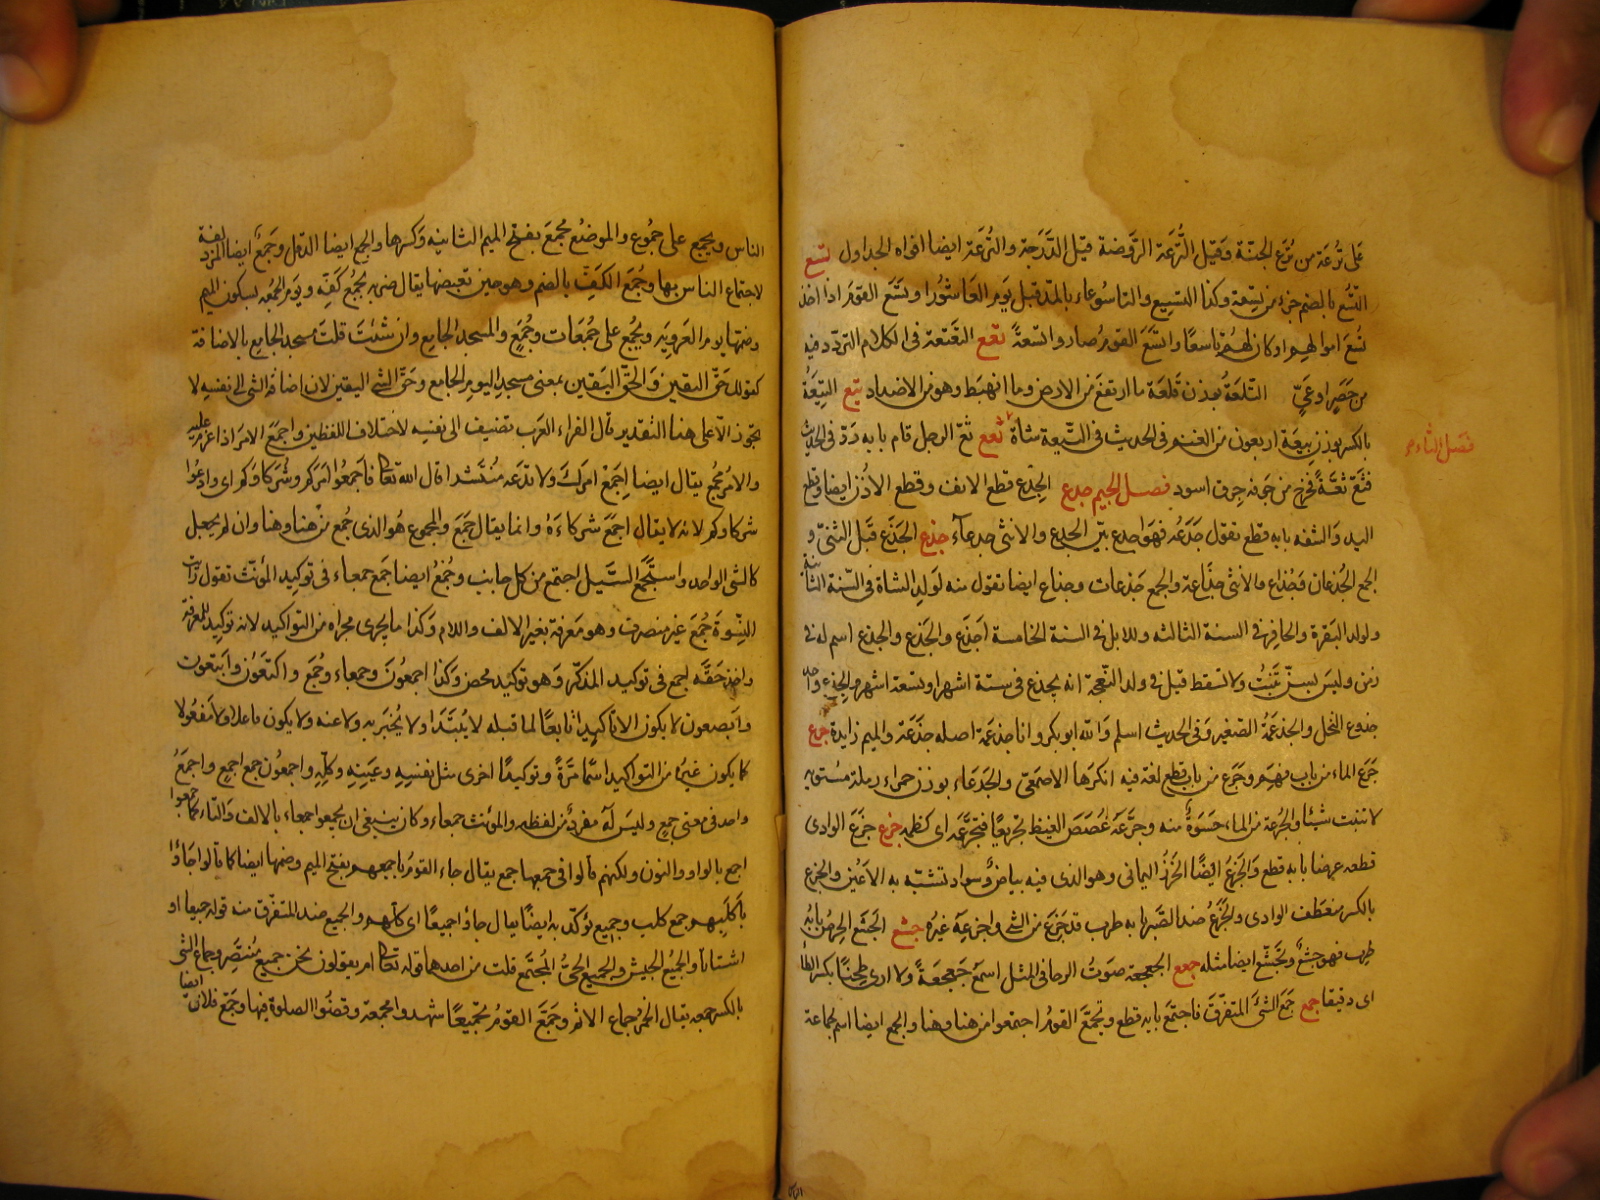 على ترعة من ترع الجنة وقيل الترعة الروضة قيل الدرجة والترعة ايضا افواه الجداول تسع
التسع بالضم جزء من تسعة وكذا التسيع والتاسوعاء بالمد قبل يوم العاشورا وتسع القوم اذا اخذ
تسع اموالهم او كان لهم تاسعا واتسع القوم صاروا تسعة تعع التعتعة فى الكلام التردد فيه
من حصر او عى التلعة بوزن قلعة ما ارتفع من الارض وما انهبط وهو من الاضداد تيع التيعة
بالكسر بوزن بيعة اربعون من الغنم وفى الحديث فى التيعة شاة ثعع ثع الرجل قاء بابه رد وفى الحديث
فثع ثعة فخرج من جوفه جرو اسود فصل الجيم جدع الجدع قطع الانف وقطع الاذن ايضا وقطع
اليد والشفه بابه قطع تقول جدعه فهو اجدع بين الجدع والانثى جدعاء جذع الجذع قبل الثنى و
الجمع الجذعان وجذاع والانثى جذعة والجمع جذعات وجذاع ايضا تقول منه لولد الشاة فى السنة الثانية
ولولد البقرة والحافر فى السنة الثالثه وللابل فى السنة الخامسة اجذع والجذع والجذع اسم له فى
زمن وليس بسن تنبت ولا تسقط قيل فى ولد النعجة انه يجذع فى ستة اشهر او تسعة اشهر والجذع واحد
جذوع النخل والجذعمة الصغير وفى الحديث اسلم والله ابو بكر وانا جذعمة اصله جذعة والميم زايدة جرع
جرع الماء من باب فهم وجرع من باب قطع لغة فيه انكرها الاصمعى والجرعاء بوزن حمراء رملة مستوية
لا تنبت شيئا والجرعة من الماء حسوة منه وجرعه غصص الغيظ تجريعا فتجرعه اى كظمه جزع جزع الوادى
قطعه عرضا بابه قطع والجزع ايضا الخرز اليمانى وهو الذى فيه بياض وسواد تشبه به الاعين والجزع
بالكسر منعطف الوادى والجزع ضد الصبر بابه طرب قد جزع من الشئ واجزعه غيره جشع الجشع الحرص بابه
طرب فهو جشع وتجشع ايضا مثله جعع الجعجعة صوت الرحا فى المثل اسمع جعجعة ولا ارى طحنا بكسر الطاء
اى دقيقا جمع جمع الشئ المتفرق فاجتمع بابه قطع وتجمع القوم اجتمعوا من هنا وهنا والجمع ايضا اسم لجماعة
فصل الثاء
الناس ويجمع على جموع والموضع مجمع بفتح الميم الثانية وكسرها والجمع ايضا الدقل وجمع ايضا المزدلفة
لاجتماع الناس بها وجمع الكف بالضم وهو حين تقبضها يقال ضربه بجمع كفه ويوم الجمعه بسكون الميم
وضمها يوم العروبة ويجمع على جمعات وجمع والمسجد الجامع وان شئت قلت مسجد الجامع بالاضافة
كقولك حق اليقين والحق اليقين بمعنى مسجد اليوم الجامع وحق الشئ اليقين لان اضافة الشى الى نفسه لا
تجوز الا على هذا التقدير قال الفراء العرب تضيف الى نفسه لاختلاف اللفظين واجمع الامر اذا عزم عليه
والامر مجمع يقال ايضا اجمع امرك ولا تدعه منتشرا قال الله تعالى فاجمعوا امركم وشركاءكم اى وادعوا
شركاءكم لانه لا يقال اجمع شركاءه وانما يقال جمع والمجموع هو الذى جمع من هنا وهنا وان لم يجعل
كالشى الواحد واستجمع السيل اجتمع من كل جانب وجمع ايضا جمع جمعاء فى توكيد المؤنث تقول رايت
النسوة جمع غير منصرف وهو معرفة بغير الالف واللام وكذا ما يجرى مجراه من التواكيد لانه توكيد للمعرفة
واخذ حقه اجمع فى توكيد المذكر وهو توكيد محض وكذا اجمعون وجمعاء وجمع واكتعون وابتعون
وابصعون لا يكون الا تاكيدا تابعا لما قبله لا يبتدا ولا يخبر به ولا عنه ولا يكون فاعلا ولا مفعولا
كما يكون غيره من التواكيد اسما مرة وتوكيدا اخرى مثل نفسه وعينه وكله واجمعون جمع اجمع واجمع
واحد فى معنى جمع وليس له مفرد من لفظه والمؤنث جمعاء وكان ينبغى ان يجمعوا جمعاء بالالف والتاء كما جمعوا
اجمع بالواو والنون ولكنهم قالوا فى جمعها جمع يقال جاء القوم باجمعهم بفتح الميم وضمها ايضا كما قالوا جاؤا
باكلبهم جمع كلب وجميع يؤكد به ايضا يقال جاؤ اجميعا اى كلهم والجميع ضد المتفرق منه قوله جميعا او
اشتاتا والجميع الجيش والجميع الحى المجتمع قلت من احدهما قوله تعالى ام يقولون نحن جميع منتصر وجماع الشى
بالكسر جمعه يقال الخمر جماع الاثم وجمع القوم تجميعا شهدوا مجمعة وقضوا الصلوة فيها وجمع فلان ايضا